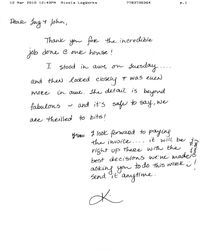 12 Mar 2010 12:43PM Nicola LogWorks 7783738264 p.1
Dear Ing & John,
Thank you for the incredible
job done @ our house!
I stood in awe on Tuesday....
and then looked closely & was even
more in awe. The detail is beyond
fabulous ~ and it's safe to say, we
are thrilled to bits!
I look forward to paying
the invoice.... it will be
right up there with the
best decisions we've made
asking you to do this work ~!
send it anytime.
K